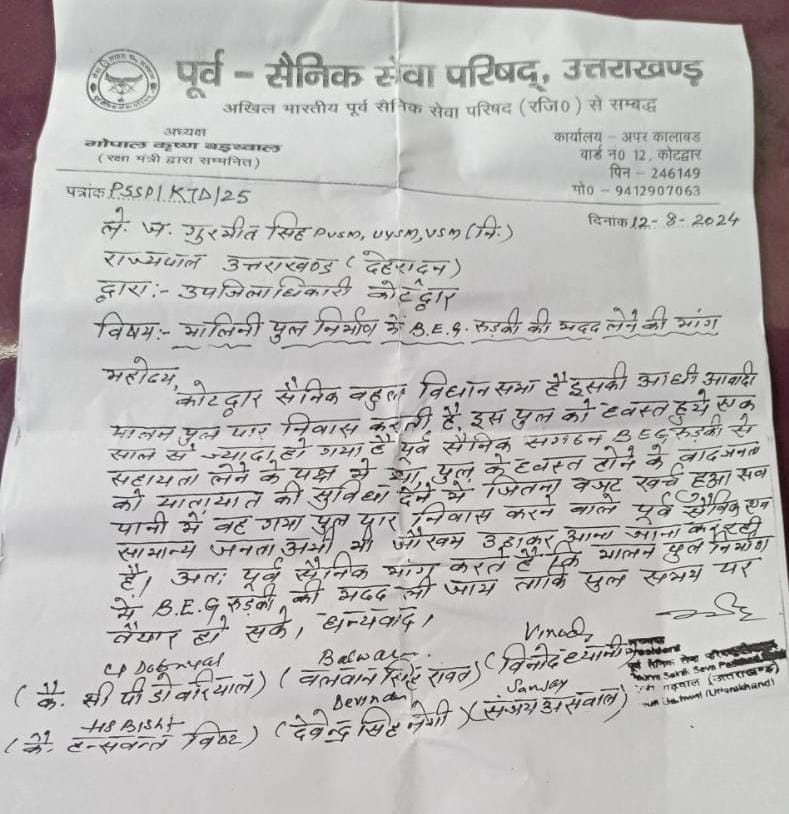 पूर्व - सैनिक सेवा परिषद्, उत्तराखण्ड़
अखिल भारतीय पूर्व सैनिक सेवा परिषद (रजि0) से सम्बद्ध
अध्यक्ष
गोपाल कृष्ण बड़थ्वाल
(रक्षा मंत्री द्वारा सम्मनित)
कार्यालय - अपर कालाबड
वार्ड न0 12, कोटद्वार
पिन - 246149
मो0 - 9412907063
पत्रांक PSSP/KTD/25
दिनांक 12-8-2024
ले. ज. गुरमीत सिंह PVSM, UYSM, VSM (नि.)
राज्यपाल उत्तराखण्ड (देहरादून)
द्वारा:- उपजिलाधिकारी कोटद्वार
विषय:- मालिनी पुल निर्माण में B.E.G. रुड़की की मदद लेने की मांग
महोदय,
कोटद्वार सैनिक बहुल विधान सभा है इसकी आधी आबादी
मालन पुल पार निवास करती है, इस पुल को ध्वस्त हुये एक
साल से ज्यादा हो गया है पूर्व सैनिक संगठन BEG रुड़की से
सहायता लेने के पक्ष में था, पुल के ध्वस्त होने के बाद जनता
को यातायात की सुविधा देने में जितना बजट खर्च हुआ सब
पानी में बह गया पुल पार निवास करने वाले पूर्व सैनिक एवं
सामान्य जनता अभी भी जोखम उठाकर आना जाना कर रही
है, अतः पूर्व सैनिक मांग करते हैं कि मालन पुल निर्माण
में B.E.G रुड़की की मदद ली जाय ताकि पुल समय पर
तैयार हो सके, धन्यवाद।
CP Dobriyal
Balwan
Vinod
(कै. सी पी डोबरियाल) (बलवान सिंह रावत) (विनोद ध्यानी)
HS Bisht
Devender
Sanjay
(कै. बिष्ट) (देवेन्द्र सिंह नेगी) (संजय असवाल)
President
(उत्तराखण्ड)
(Uttarakhand)